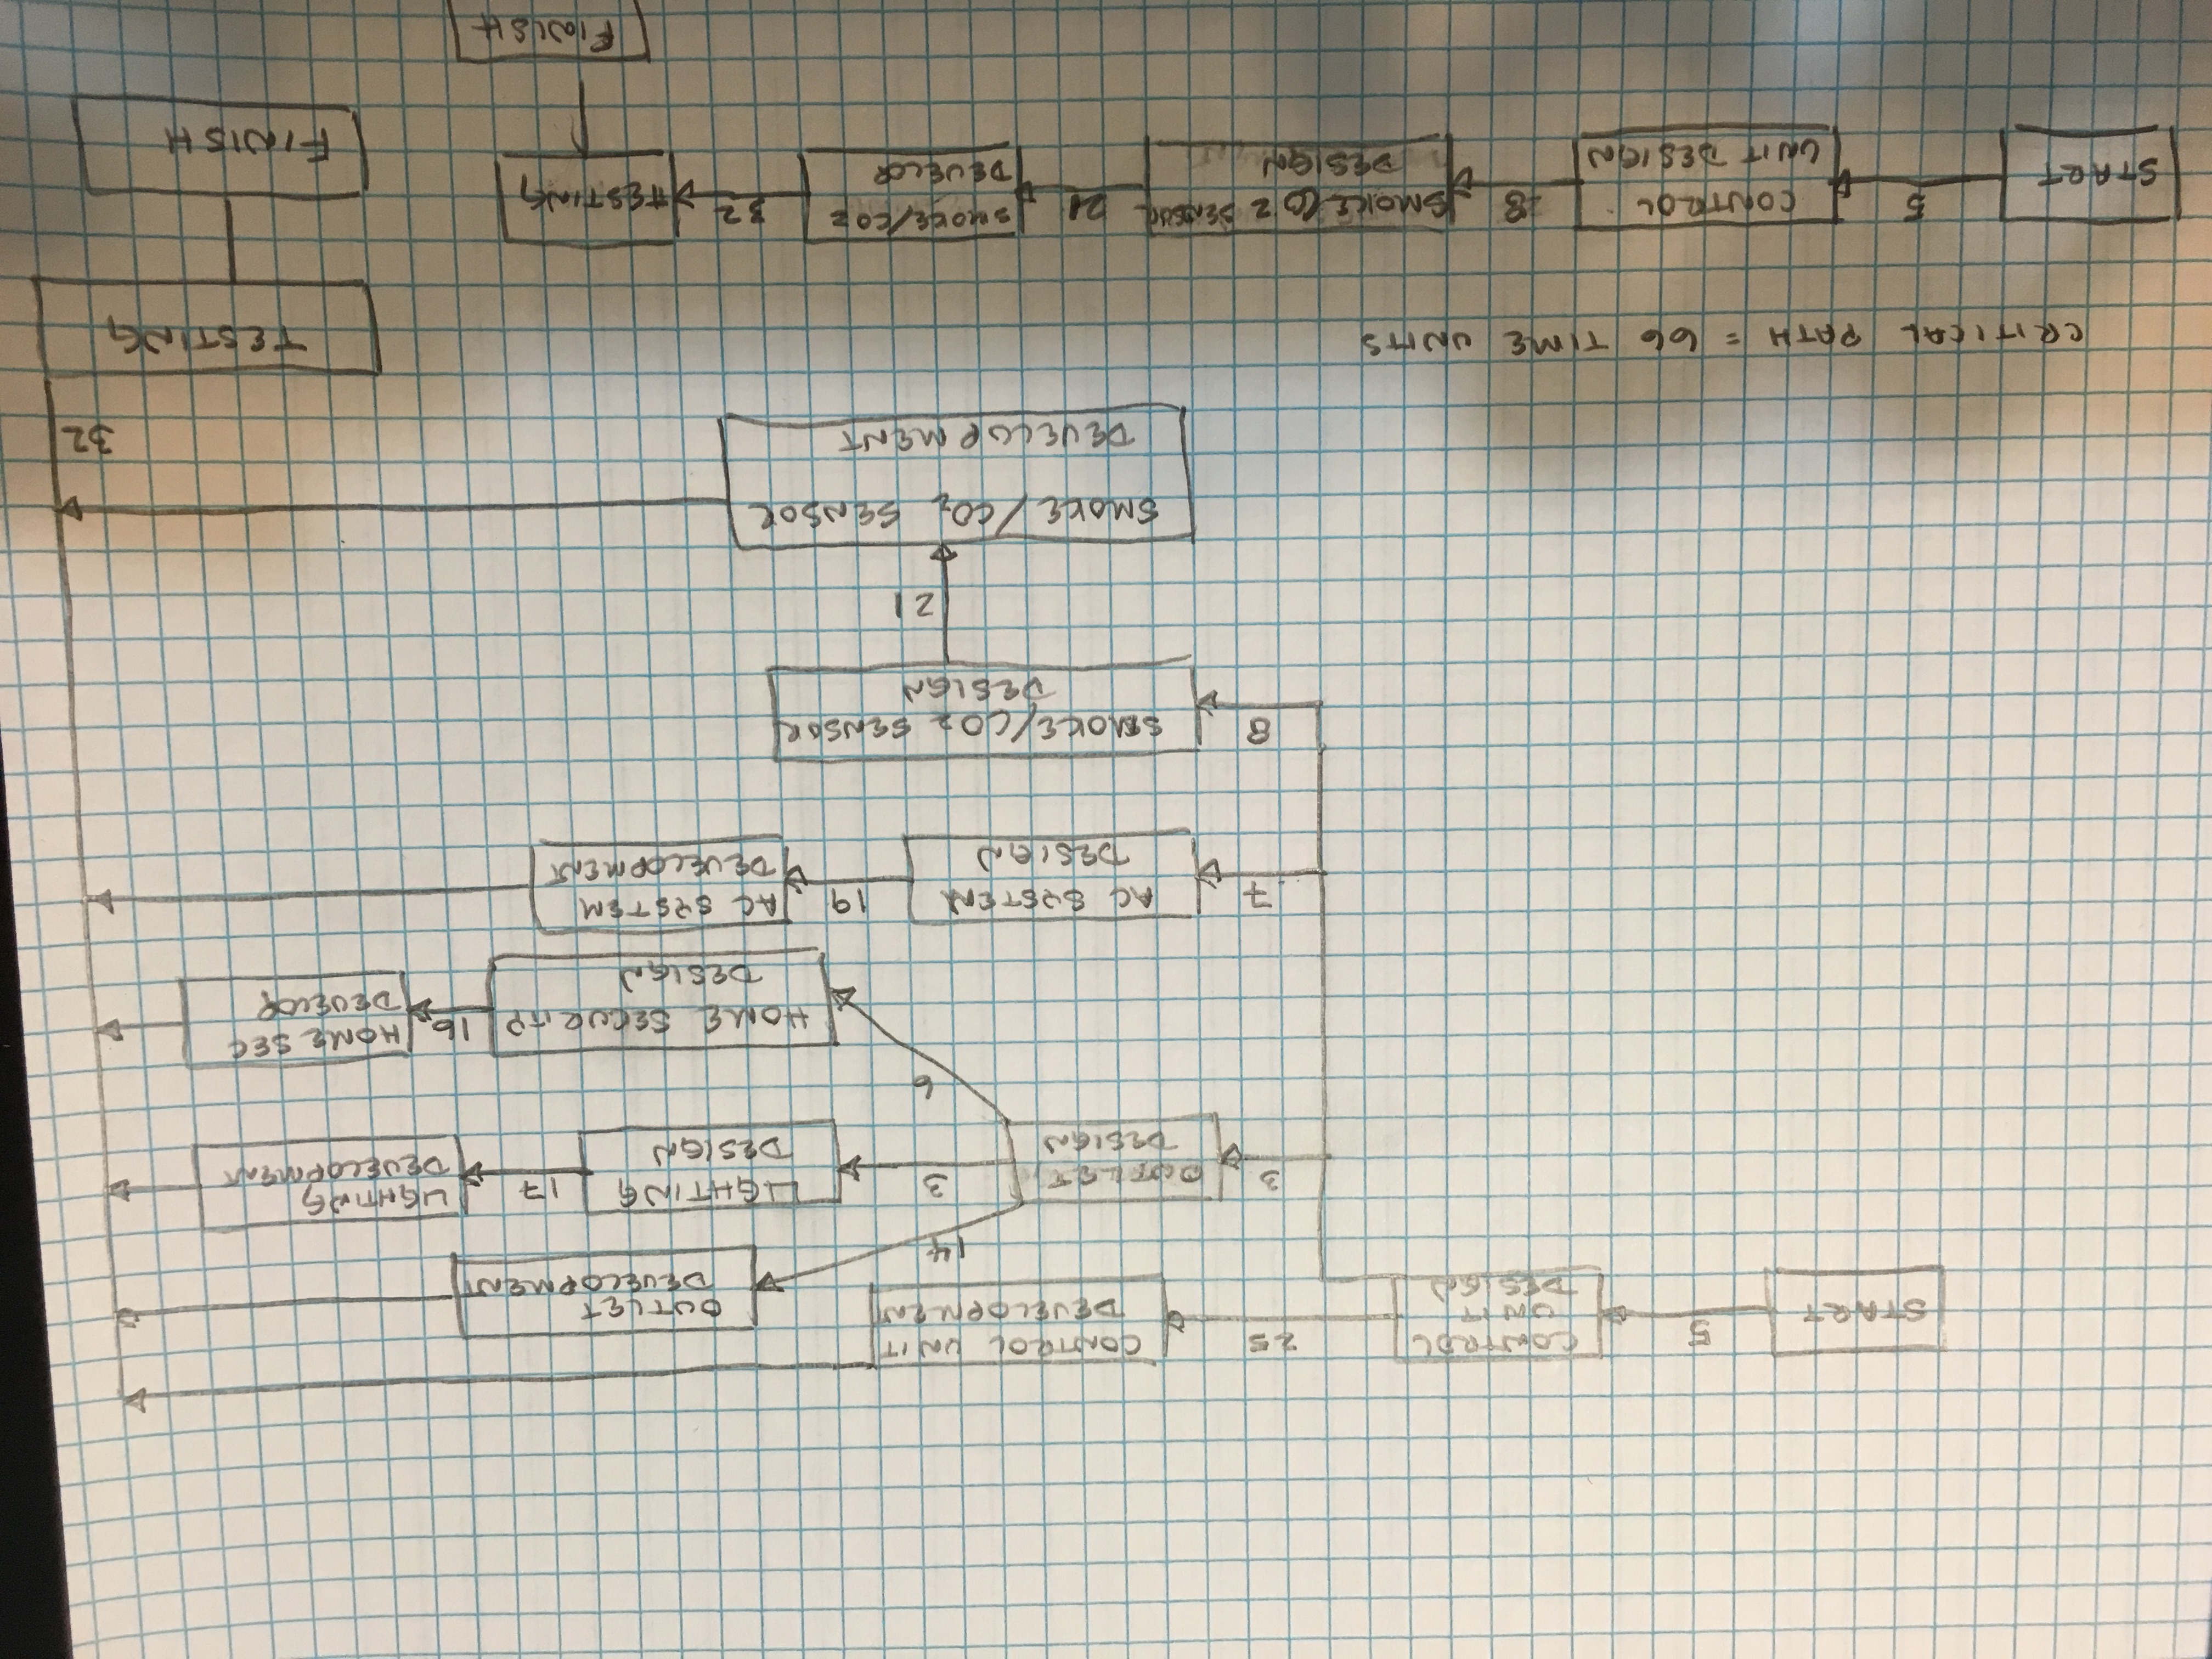 START
5
CONTROL
UNIT
DESIGN
25
CONTROL UNIT
DEVELOPMENT
3
OUTLET
DESIGN
14
OUTLET
DEVELOPMENT
3
LIGHTING
DESIGN
17
LIGHTING
DEVELOPMENT
6
HOME SECURITY
DESIGN
16
HOME SEC
DEVELOP
7
AC SYSTEM
DESIGN
19
AC SYSTEM
DEVELOPMENT
8
SMOKE/CO2 SENSOR
DESIGN
21
SMOKE/CO2 SENSOR
DEVELOPMENT
32
TESTING
FINISH
CRITICAL PATH = 66 TIME UNITS
START
5
CONTROL
UNIT DESIGN
8
SMOKE/CO2 SENSOR
DESIGN
21
SMOKE/CO2
DEVELOP
32
TESTING
FINISH